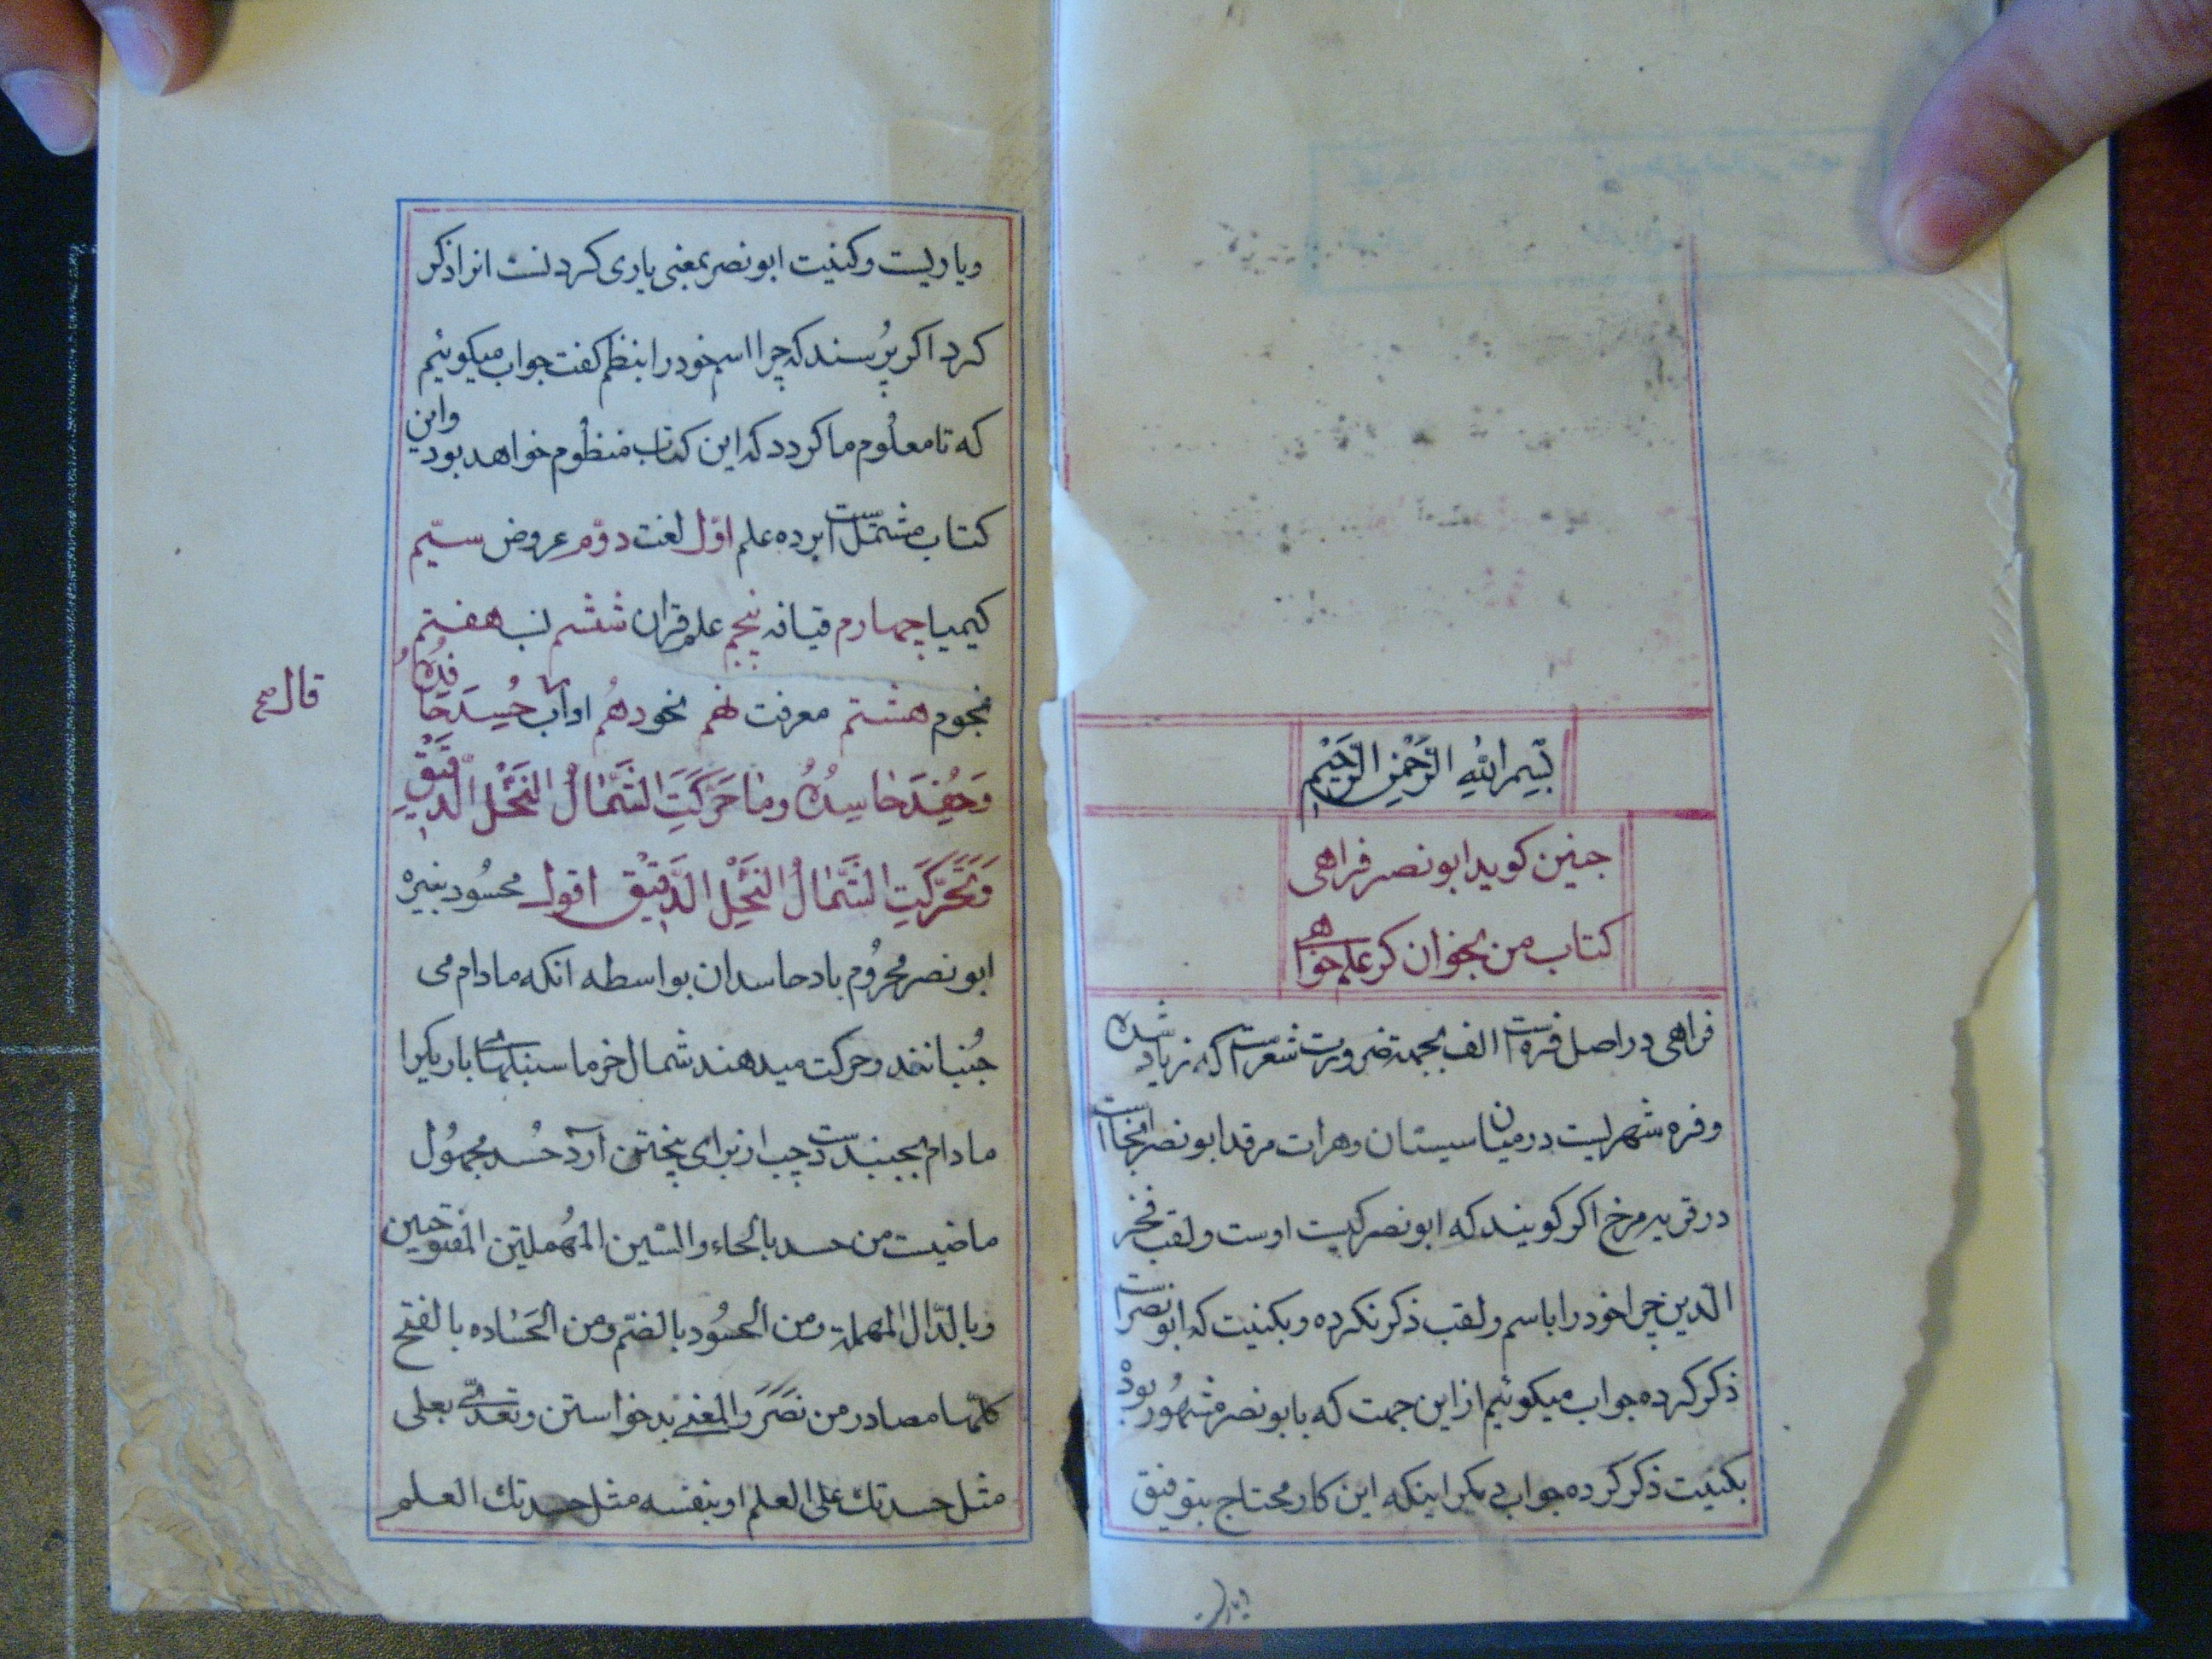 بِسْمِ اللهِ الرَّحْمٰنِ الرَّحِيْمِ
چنين كويد ابونصر فراهى
كتاب من بخوان كر علم خواهى
فراهى در اصل فره است الف بجهة ضرورت شعرست كه زياد شده
وفره شهريست درميان سيستان وهرات مرقد ابونصر انجاست
در قريه مرخ اكر كويند كه ابونصر كنيت اوست ولقب فخر
الدين چرا خود را باسم ولقب ذكر نكرده وبكنيت كه ابونصرست
ذكر كرده جواب ميكوئيم از اين جهت كه بابونصر مشهُور بودْ
بكنيت ذكر كرده جواب ديكر اينكه اين كار محتاج بتوفيق
وياريست
وياريست وكنيت ابونصر بمعنى يارى كردنست انرا ذكر
كرد اكر پُرسند كه چرا اسم خود را بنظم كفت جواب ميكوئيم
كه تا معلُوم ما كردد كه اين كتاب منظُوم خواهد بود واين
كتاب مشتمل است بر ده علم اوّل لغت دوّم عروض سيّم
كيميا چهارم قيافه پنجم علم قران ششم نسب هفتم
نجوم هشتم معرفت نهم نحو دهُم اداب حُسِدَ حَافِدُهُ
قال ع
وَحُفِدَ حاسِدُهُ وما حَرَكَتِ الشَّمٰالُ النَّخْلَ الدَّقيْقِ
وَتَحَرَّكَتِ الشَّمٰالُ النَّخْلِ الدَّقيْقِ اقول محسُود نبيره
ابونصر محرُوم باد حاسدان بواسطه انكه مادام مى
جُنبانند وحركت ميدهند شمال خرما سنبلهاى باريكرا
مادام بجنبد دست چپ از براى پختن آرد حُسد مجهُول
ماضيست من حسد بالحاء والسّين المُهملتين المفتوحين
وبالدّال المهملة ومن الحسُود بالضّم ومن الحَسٰاده بالفتح
كلّها مصادر من نَصَرَ والمعنى بد خواستن وتعدّى بعلى
مثل حسدتك على العلم او بنفسه مثل حسدتك العلم